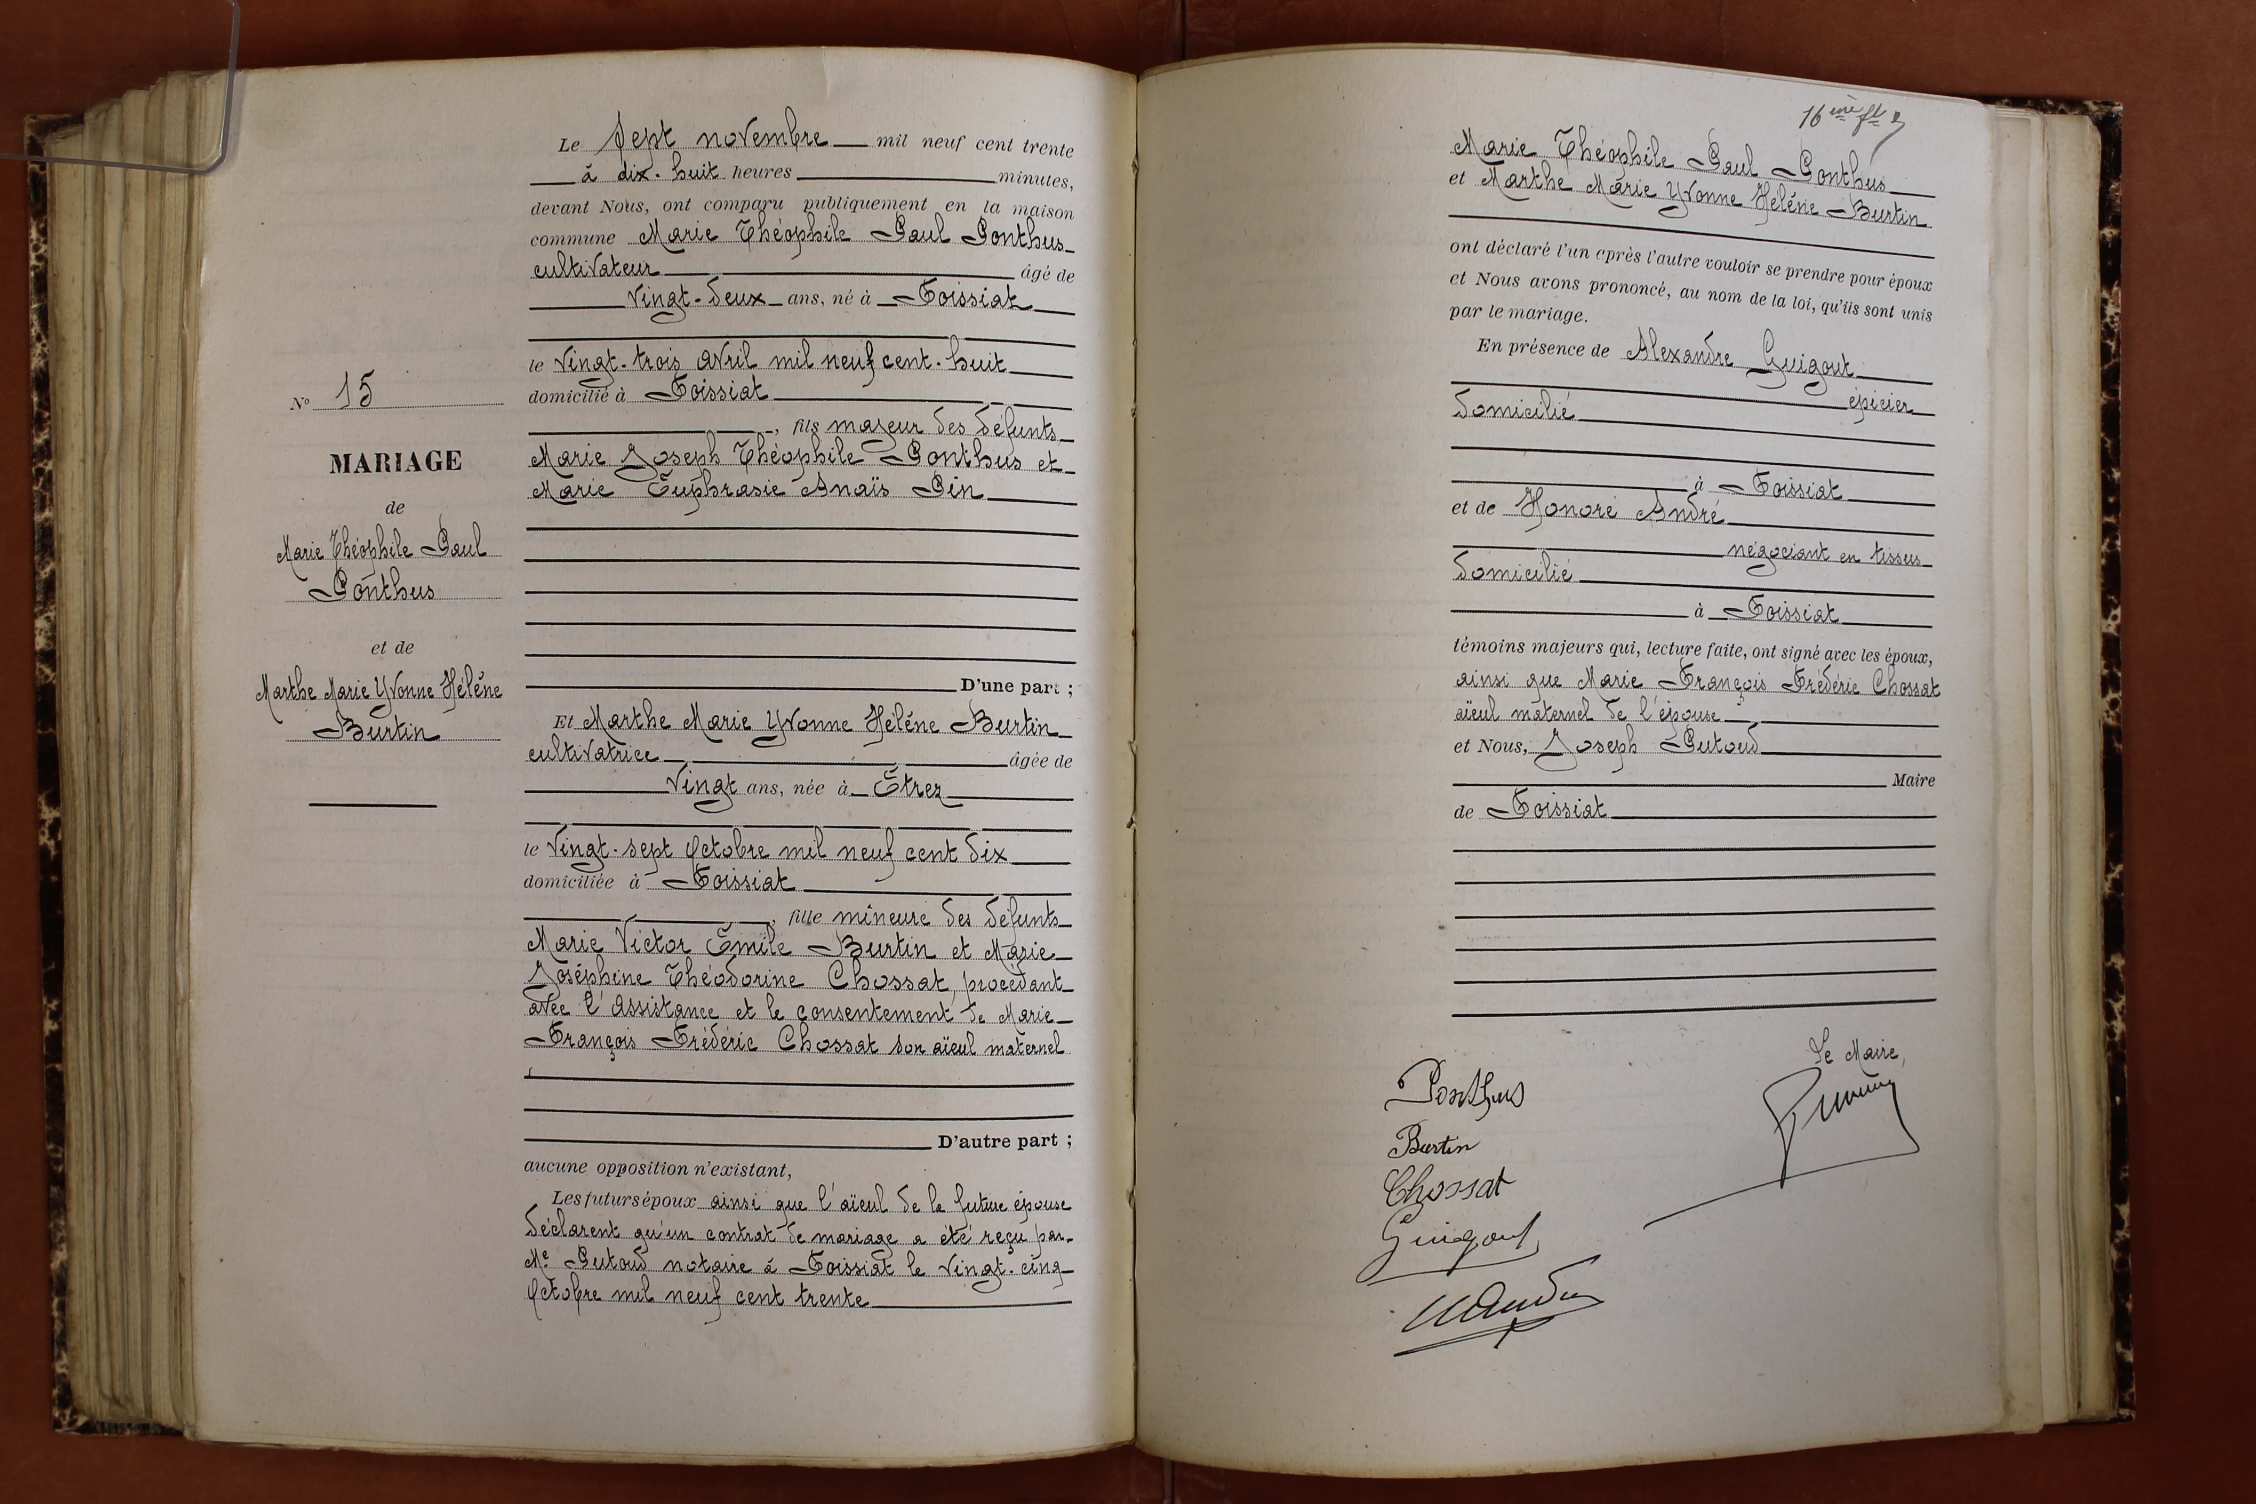 Nº 15
MARIAGE
de
Marie Théophile Paul
Ponthus
et de
Marthe Marie Yvonne Hélène
Burtin
Le sept novembre mil neuf cent trente
à dix-huit heures minutes,
devant Nous, ont comparu publiquement en la maison
commune Marie Théophile Paul Ponthus
cultivateur âgé de
vingt-deux ans, né à Foissiat
le vingt-trois avril mil neuf cent-huit
domicilié à Foissiat
, fils majeur des défunts
Marie Joseph Théophile Ponthus et
Marie Euphrasie Anaïs Pin
D'une part ;
Et Marthe Marie Yvonne Hélène Burtin
cultivatrice âgée de
vingt ans, née à Étrez
le vingt-sept octobre mil neuf cent dix
domiciliée à Foissiat
, fille mineure des défunts
Marie Victor Émile Burtin et Marie
Joséphine Théodorine Chossat, procédant
avec l'assistance et le consentement de Marie
François Frédéric Chossat son aïeul maternel
D'autre part ;
aucune opposition n'existant,
Les futurs époux ainsi que l'aïeul de la future épouse
déclarent qu'un contrat de mariage a été reçu par
Me Putoud notaire à Foissiat le vingt-cinq
octobre mil neuf cent trente
16ème ft
Marie Théophile Paul Ponthus
et Marthe Marie Yvonne Hélène Burtin
ont déclaré l'un après l'autre vouloir se prendre pour époux
et Nous avons prononcé, au nom de la loi, qu'ils sont unis
par le mariage.
En présence de Alexandre Guigout
épicier
domicilié
à Foissiat
et de Honoré André
négociant en tissus
domicilié
à Foissiat
témoins majeurs qui, lecture faite, ont signé avec les époux,
ainsi que Marie François Frédéric Chossat
aïeul maternel de l'épouse
et Nous, Joseph Putoud
Maire
de Foissiat
Le Maire,
Ponthus
Burtin
Chossat
Guigout